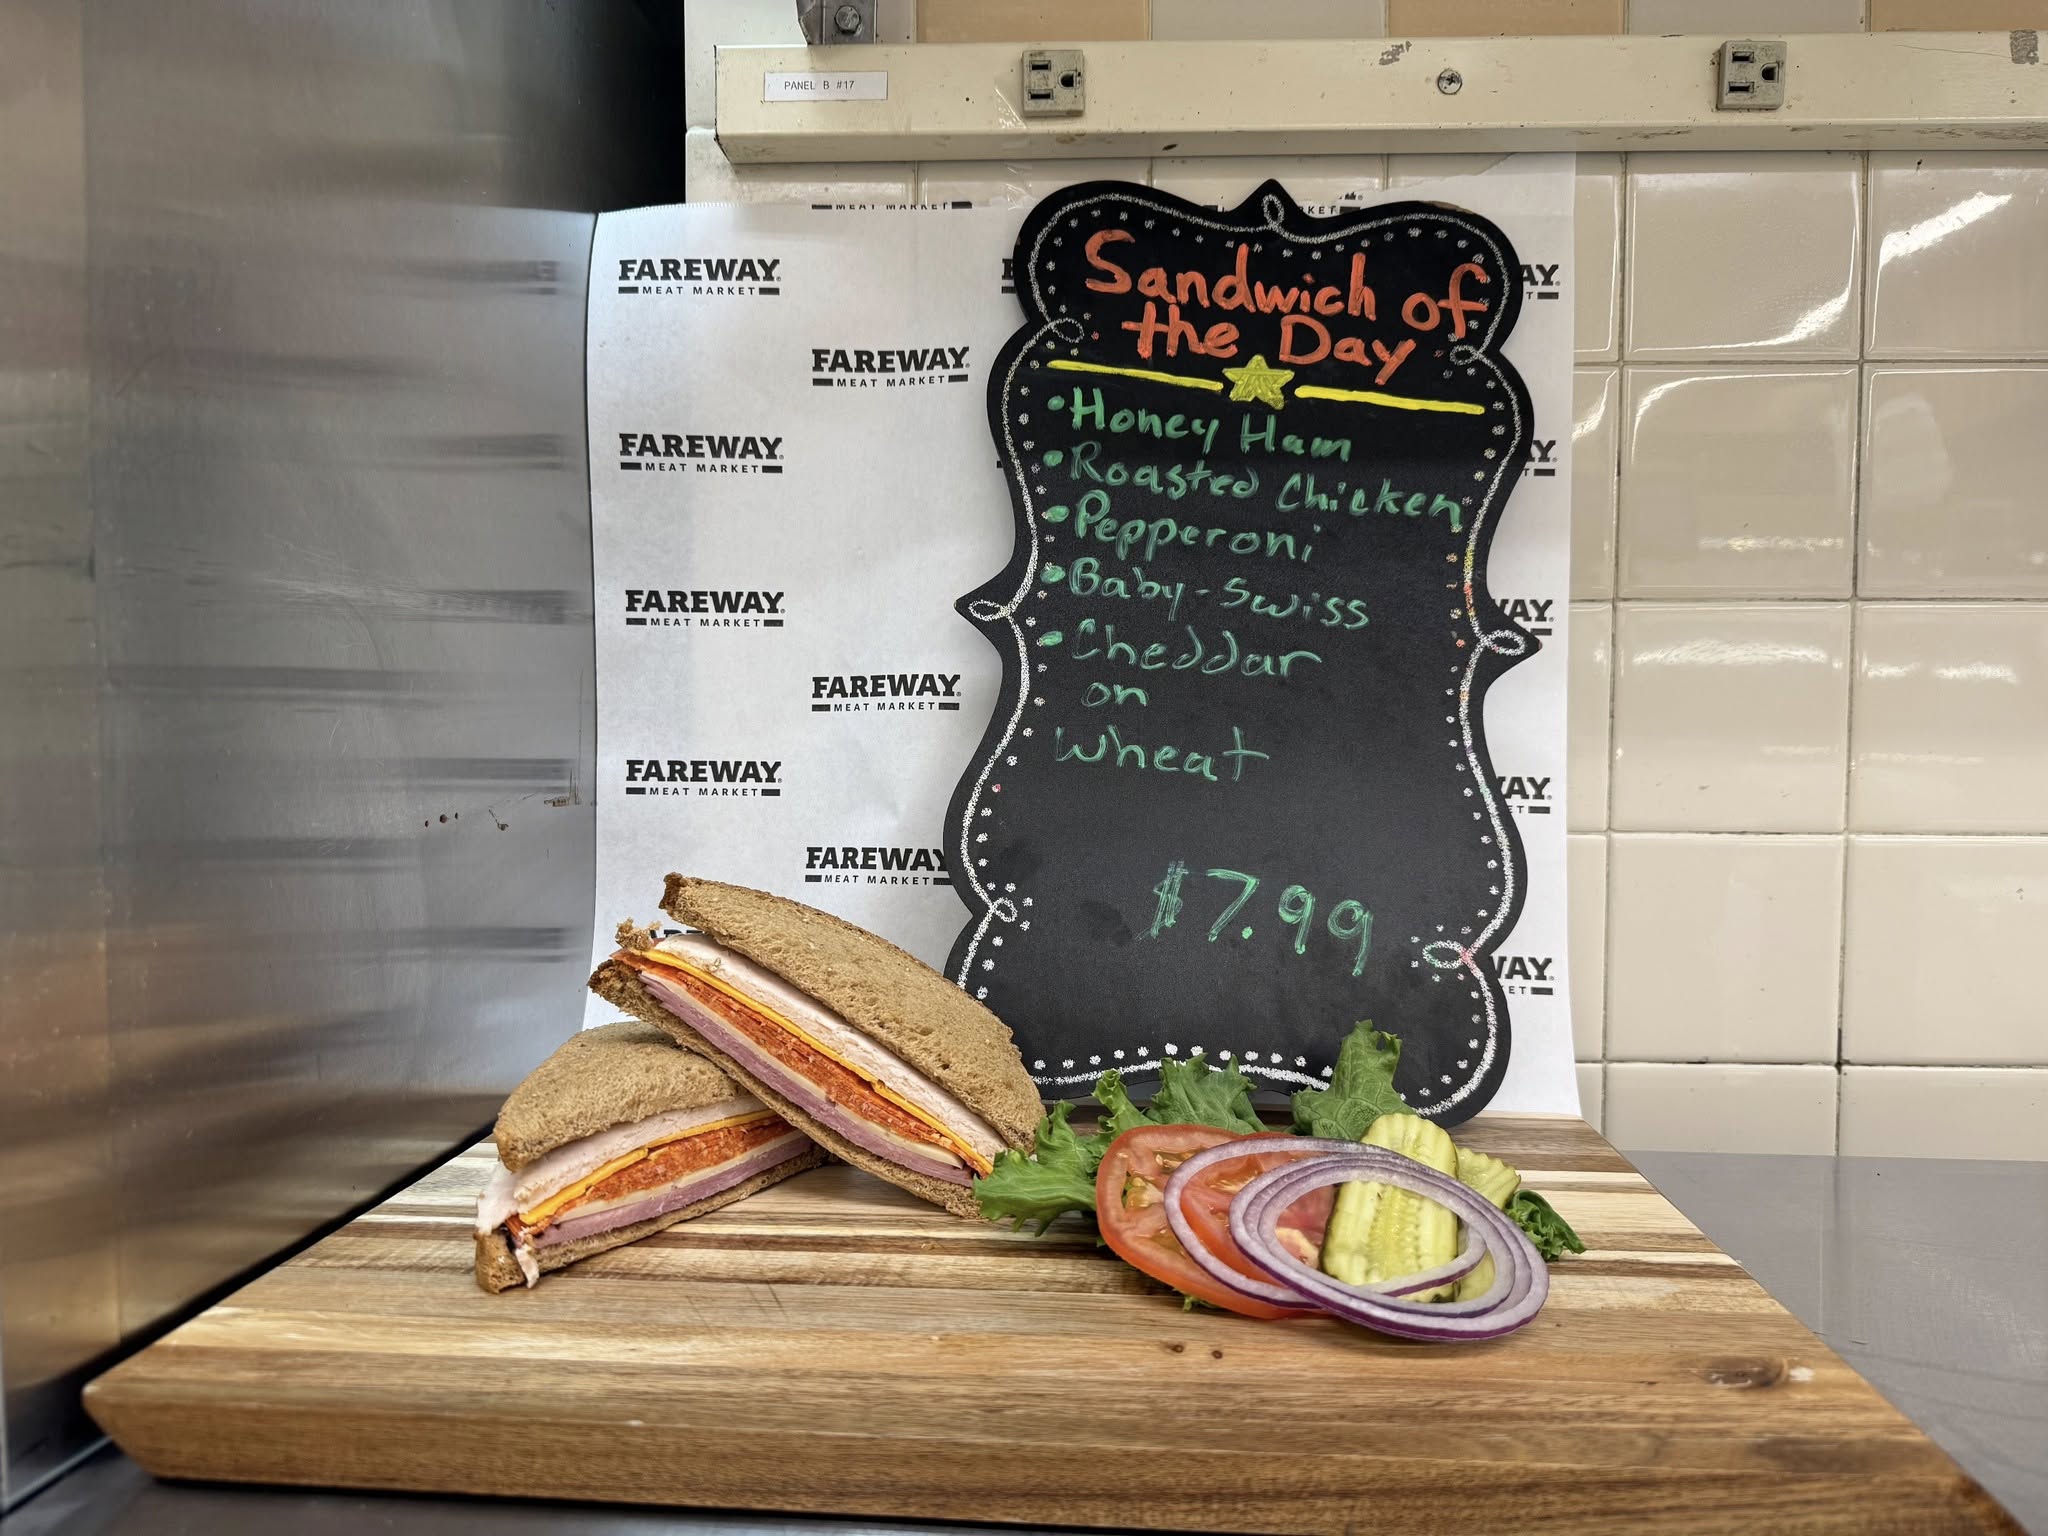 PANEL B #17
MEAT MARKET
KET
FAREWAY
MEAT MARKET
FAREWAY
MEAT MARKET
FAREWAY
MEAT MARKET
FAREWAY
MEAT MARKET
FAREWAY
MEAT MARKET
FAREWAY
MEAT MARKET
FAREWAY
MEAT MARKET
Sandwich of
the Day
• Honey Ham
• Roasted Chicken
• Pepperoni
• Baby-Swiss
• Cheddar
on
Wheat
$7.99
AY
T
AY
T
WAY
WAY
ET
WAY
KET